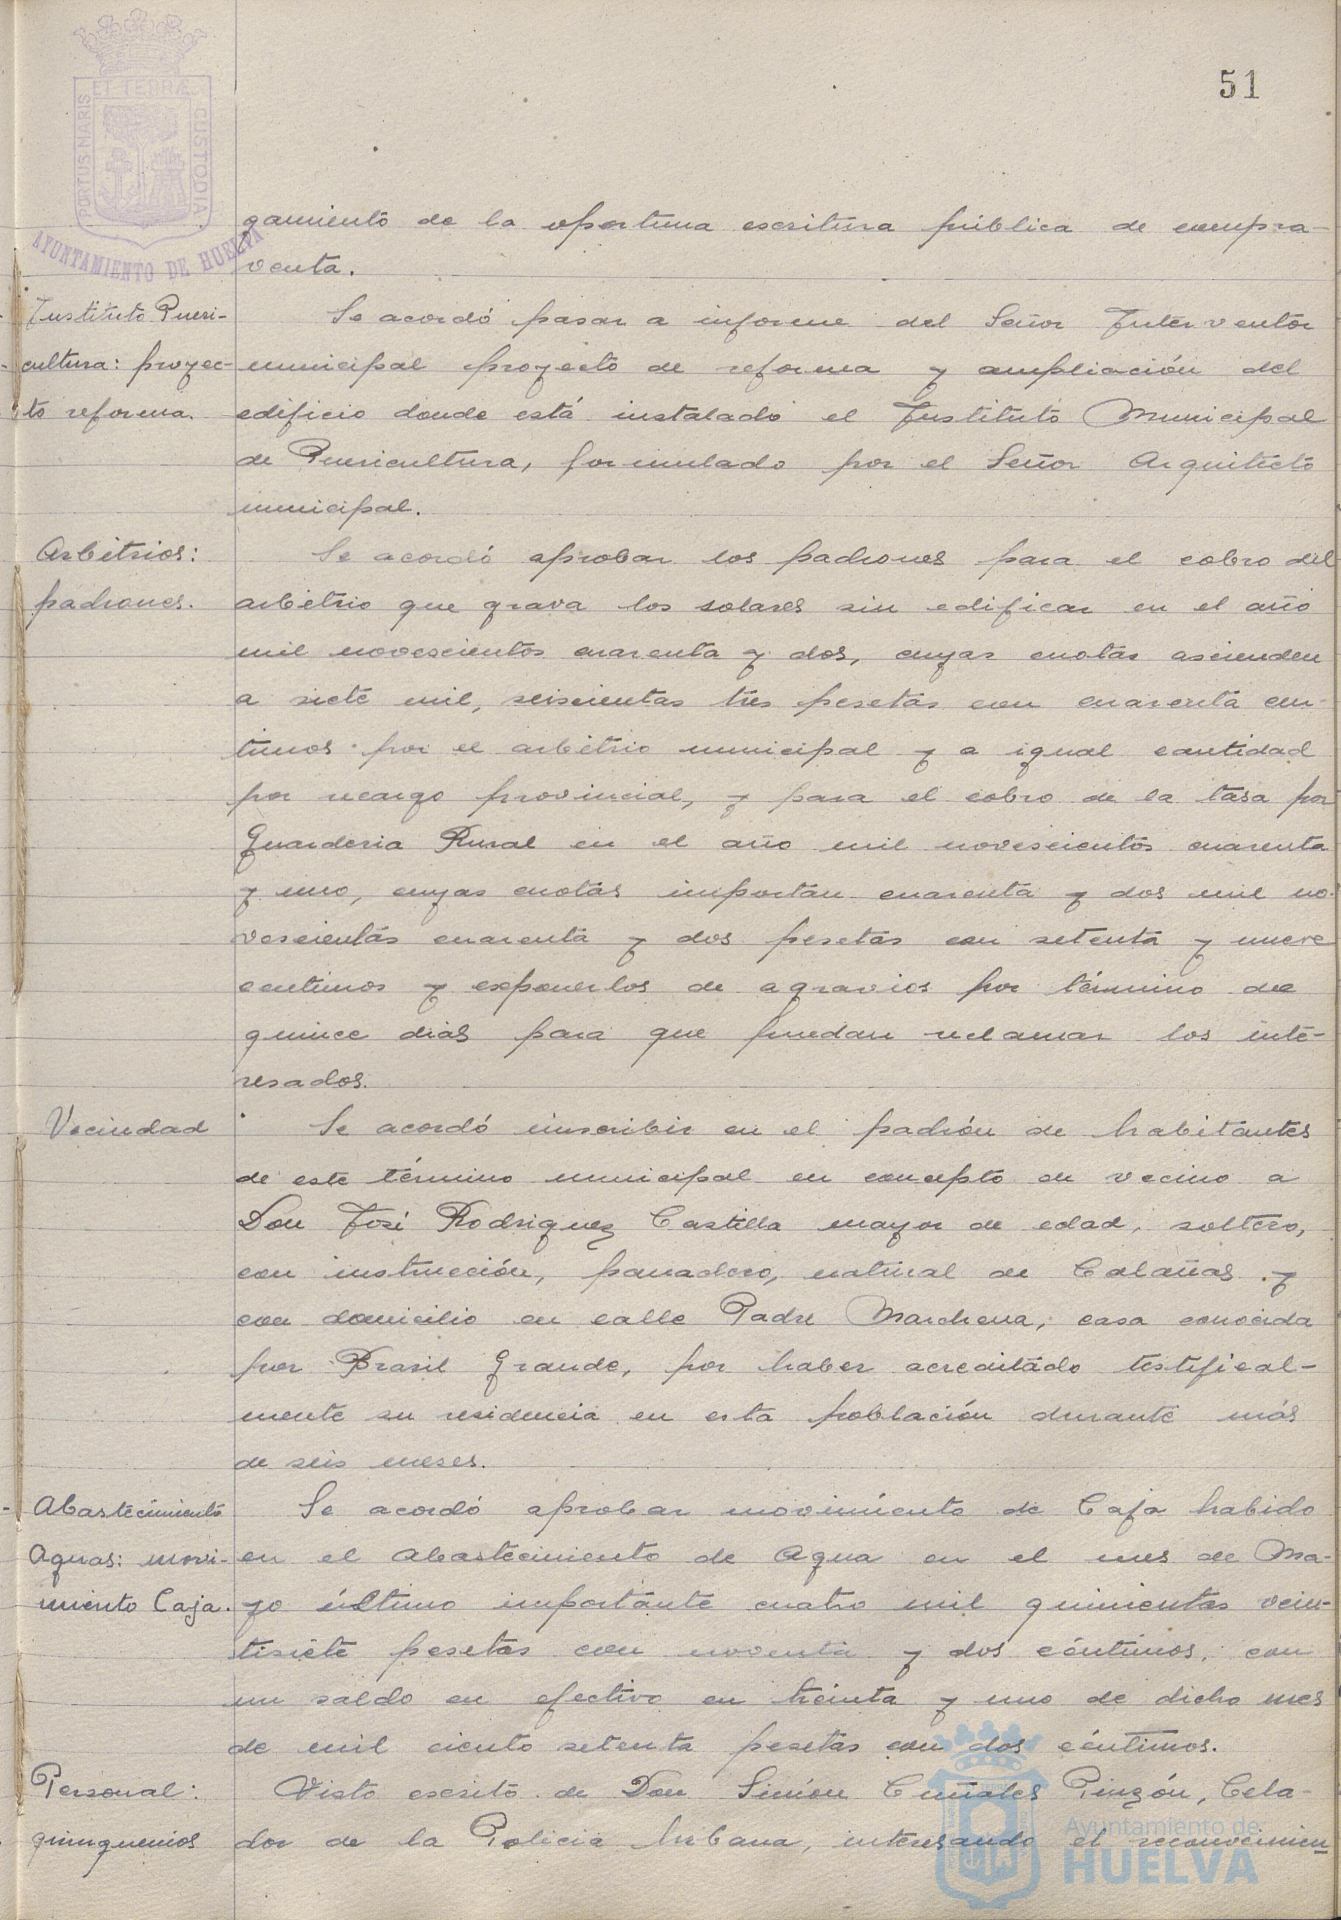 51
PORTUS MARIS ET TERRÆ CUSTODIA
AYUNTAMIENTO DE HUELVA
gamiento de la oportuna escritura pública de compra-
venta.
Instituto Pueri-
cultura: proyec-
to reforma.
Se acordó pasar a informe del Señor Interventor
municipal proyecto de reforma y ampliación del
edificio donde está instalado el Instituto Municipal
de Puericultura, formulado por el Señor Arquitecto
municipal.
Arbitrios:
padrones.
Se acordó aprobar los padrones para el cobro del
arbitrio que grava los solares sin edificar en el año
mil novescientos cuarenta y dos, cuyas cuotas ascienden
a siete mil, seiscientas tres pesetas con cuarenta cen-
timos por el arbitrio municipal y a igual cantidad
por recargo provincial, y para el cobro de la tasa por
Guarderia Rural en el año mil novescientos cuarenta
y uno, cuyas cuotas importan cuarenta y dos mil no-
vescientas cuarenta y dos pesetas con setenta y nueve
centimos y exponerlos de agravios por término de
quince dias para que puedan reclamar los inte-
resados.
Vecindad
Se acordó inscribir en el padrón de habitantes
de este término municipal en concepto de vecino a
Don José Rodriguez Castilla mayor de edad, soltero,
con instrucción, panadero, natural de Calañas y
con domicilio en calle Padre Marchena, casa conocida
por Brasil Grande, por haber acreditado testifical-
mente su residencia en esta población durante más
de seis meses.
Abastecimiento
Aguas: movi-
miento Caja.
Se acordó aprobar movimiento de Caja habido
en el Abastecimiento de Agua en el mes de Ma-
yo último importante cuatro mil quinientas vein-
tisiete pesetas con noventa y dos céntimos, con
un saldo en efectivo en treinta y uno de dicho mes
de mil ciento setenta pesetas con dos céntimos.
Personal:
quinquenios
Visto escrito de Don Simón Cumales Pinzón, Cela-
dor de la Policia Urbana, interesando el reconocimien-
Ayuntamiento de
HUELVA